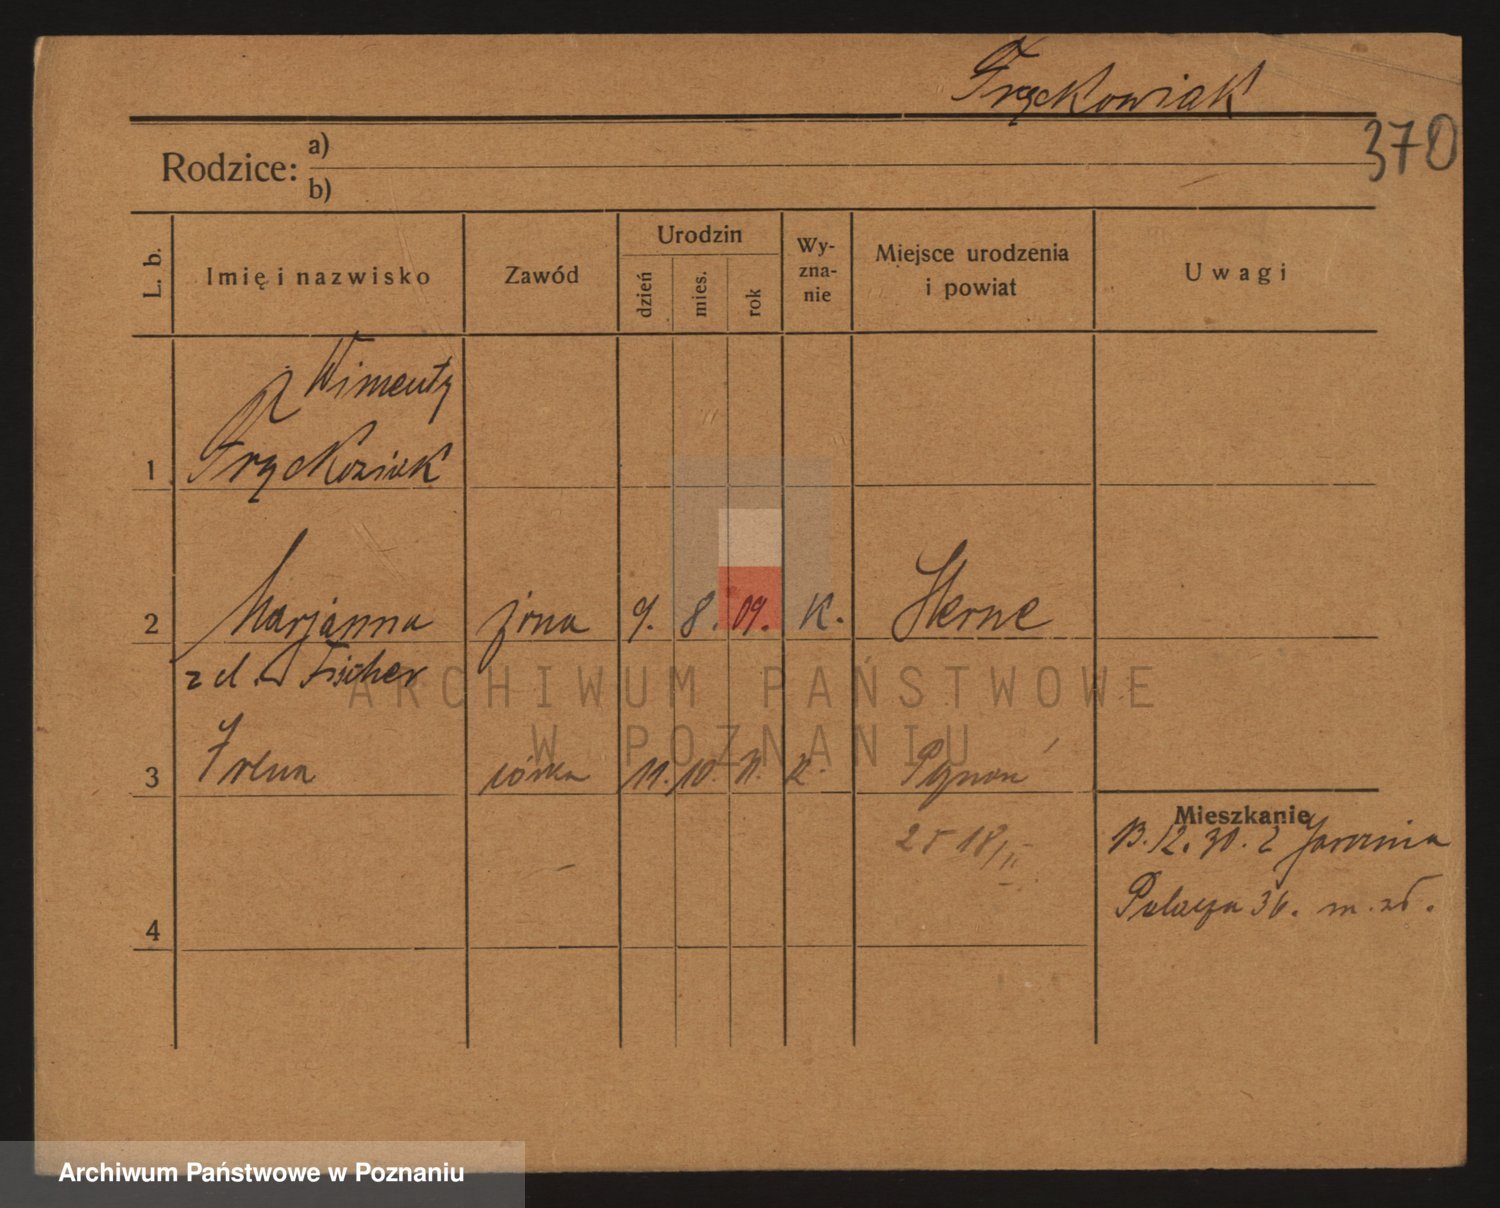 Fryckowiak
370
Rodzice: a)
b)
L. b.
Imię i nazwisko
Zawód
Urodzin
dzień
mies.
rok
Wy-
zna-
nie
Miejsce urodzenia
i powiat
Uwagi
Winenty
1 Fryckowiak
2 Marjanna żona 9. 8. 09. K. Herne
z d. Fischer
3 Irena córka 11. 10. K.
Mieszkanie
25 18/II
B. 12. 30. z Jarocina
4
Palacza 36. m.
ARCHIWUM PAŃSTWOWE
W POZNANIU
Archiwum Państwowe w Poznaniu